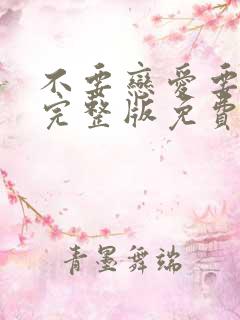 不要戀愛要
完整版免費
青墨舞端